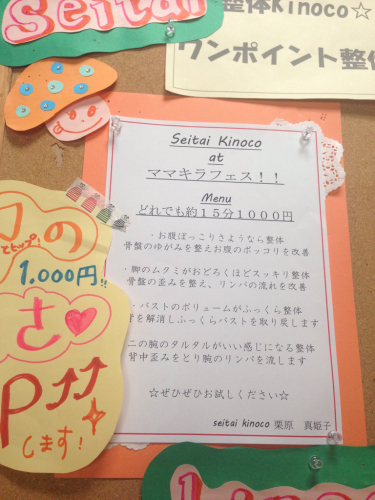 Seitai
整体Kinoco☆
ワンポイント整体
Seitai Kinoco
at
ママキラフェス！！
Menu
どれでも約１５分１０００円
・お腹ぽっこりさようなら整体
骨盤のゆがみを整えお腹のポッコリを改善
・脚のムクミがおどろくほどスッキリ整体
骨盤の歪みを整え、リンパの流れを改善
・バストのボリュームがふっくら整体
を解消しふっくらバストを取り戻します
二の腕のタルタルがいい感じになる整体
背中歪みをとり腕のリンパを流します
☆ぜひぜひお試しください☆
seitai kinoco 栗原　真姫子
の
とヒップ!
1.000円!!
さ♥
P↑↑
します!